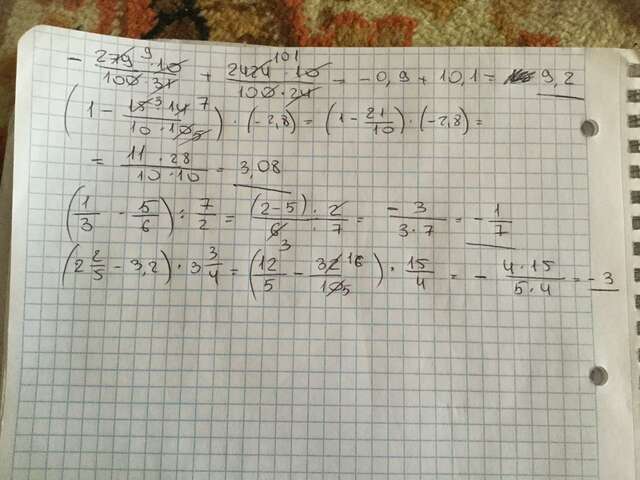 - 279 9 · 10 / 100 · 31 + 2424 101 · 10 / 100 · 24 = -0,9 + 10,1 = 9,2
(1 - 15 3 · 14 7 / 10 · 10 5) · (-2,8) = (1 - 21/10) · (-2,8) =
= 11 · 28 / 10 · 10 = 3,08
(1/3 - 5/6) ÷ 7/2 = (2-5) · 2 / 6 3 · 7 = -3 / 3·7 = - 1/7
(2 2/5 - 3,2) · 3 3/4 = (12/5 - 32 16 / 10 5) · 15/4 = - 4·15 / 5·4 = -3